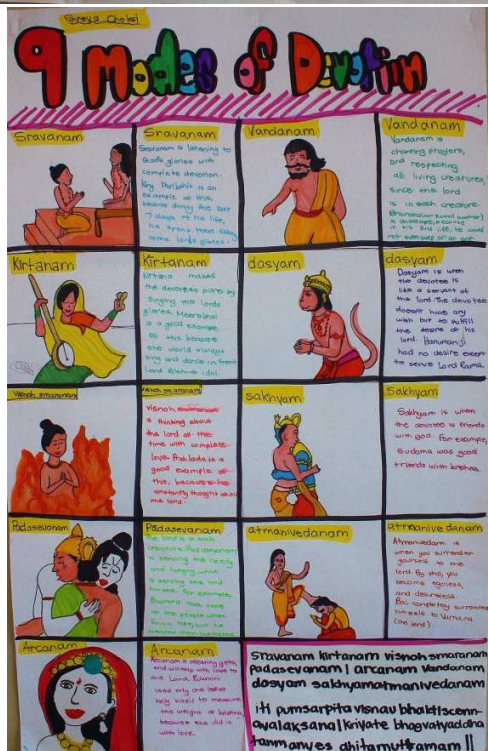 Shreya Chohsi
9 Modes of Devotion
Sravanam
Sravanam
Sravanam is listening to
Gods glories with
complete devotion.
King Parikshit is an
example of this,
because during the last
7 days of his life,
he spent them
lords glories.
Vandanam
Vandanam
Vandanam is
chanting prayers,
and respecting
all living creatures,
since the lord
is in each creature.
not even step on an ant
Kirtanam
Kirtanam
Kirtana makes
the devotees pure by
singing the lords
glories. Meerabhai
is a good example
of this because
she would always
sing and dance in front
Lord Krishna idol.
dasyam
dasyam
Dasyam is when
the devotee is
like a servant of
the lord. The devotee
doesn't have any
wish but to fulfill
the desire of his
lord. Hanumanji
had no desire except
to serve Lord Rama.
Vishnoh smaranam
Vishnoh smaranam
Visnoh smaranam
is thinking about
the lord all the
time with complete
love. Prahlada is a
good example of
this, because he
constantly thought about
the lord.
sakhyam
Sakhyam
Sakhyam is when
the devotee is friends
with god. For example,
Sudama was good
friends with krishna.
Padasevanam
Padasevanam
the lord is in each
creature. Padasevanam
is serving the needy
and hungry, which
is serving the lord
himself. For example,
Bharata took care
of the people when
atmanivedanam
atmanivedanam
Atmanivedam is
when you surrender
yourself to the
lord. By this, you
become egoless,
and desireless.
Bali completely surrendered
himself to Vamana
(the lord).
Arcanam
Arcanam
Arcanam is offering gifts,
and worship with love to
the Lord. Rukmini
used only one leaf
holy basil to measure
the weight of krishna,
because she did it
with love.
sravanam kirtanam visnoh smaranam
padasevanam | arcanam vandanam
dasyam sakhyamatmanivedanam
iti pumsarpita visnav bhaktiscenn-
avalaksana| kriyate bhagvatyaddha
tanmanyes dhitamuttamam ||